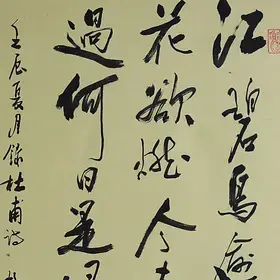 江碧鳥逾
花欲燃今
過何日是
壬辰夏月錄杜甫詩